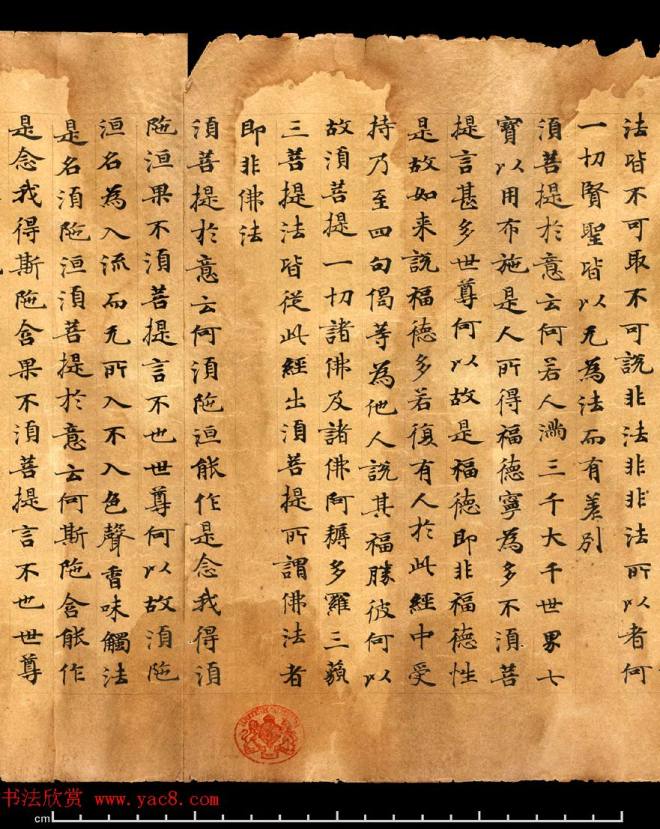 法皆不可取不可說非法非非法所以者何
一切賢聖皆以无為法而有差別
湏菩提於意云何若人滿三千大千世界七
寶以用布施是人所得福德寧為多不湏菩
提言甚多世尊何以故是福德即非福德性
是故如来說福德多若復有人於此經中受
持乃至四句偈等為他人說其福勝彼何以
故湏菩提一切諸佛及諸佛阿耨多羅三藐
三菩提法皆從此經出湏菩提所謂佛法者
即非佛法
湏菩提於意云何湏陁洹能作是念我得湏
陁洹果不湏菩提言不也世尊何以故湏陁
洹名為入流而无所入不入色聲香味觸法
是名湏陁洹湏菩提於意云何斯陁含能作
是念我得斯陁含果不湏菩提言不也世尊
书法欣赏 www.yac8.com
cm